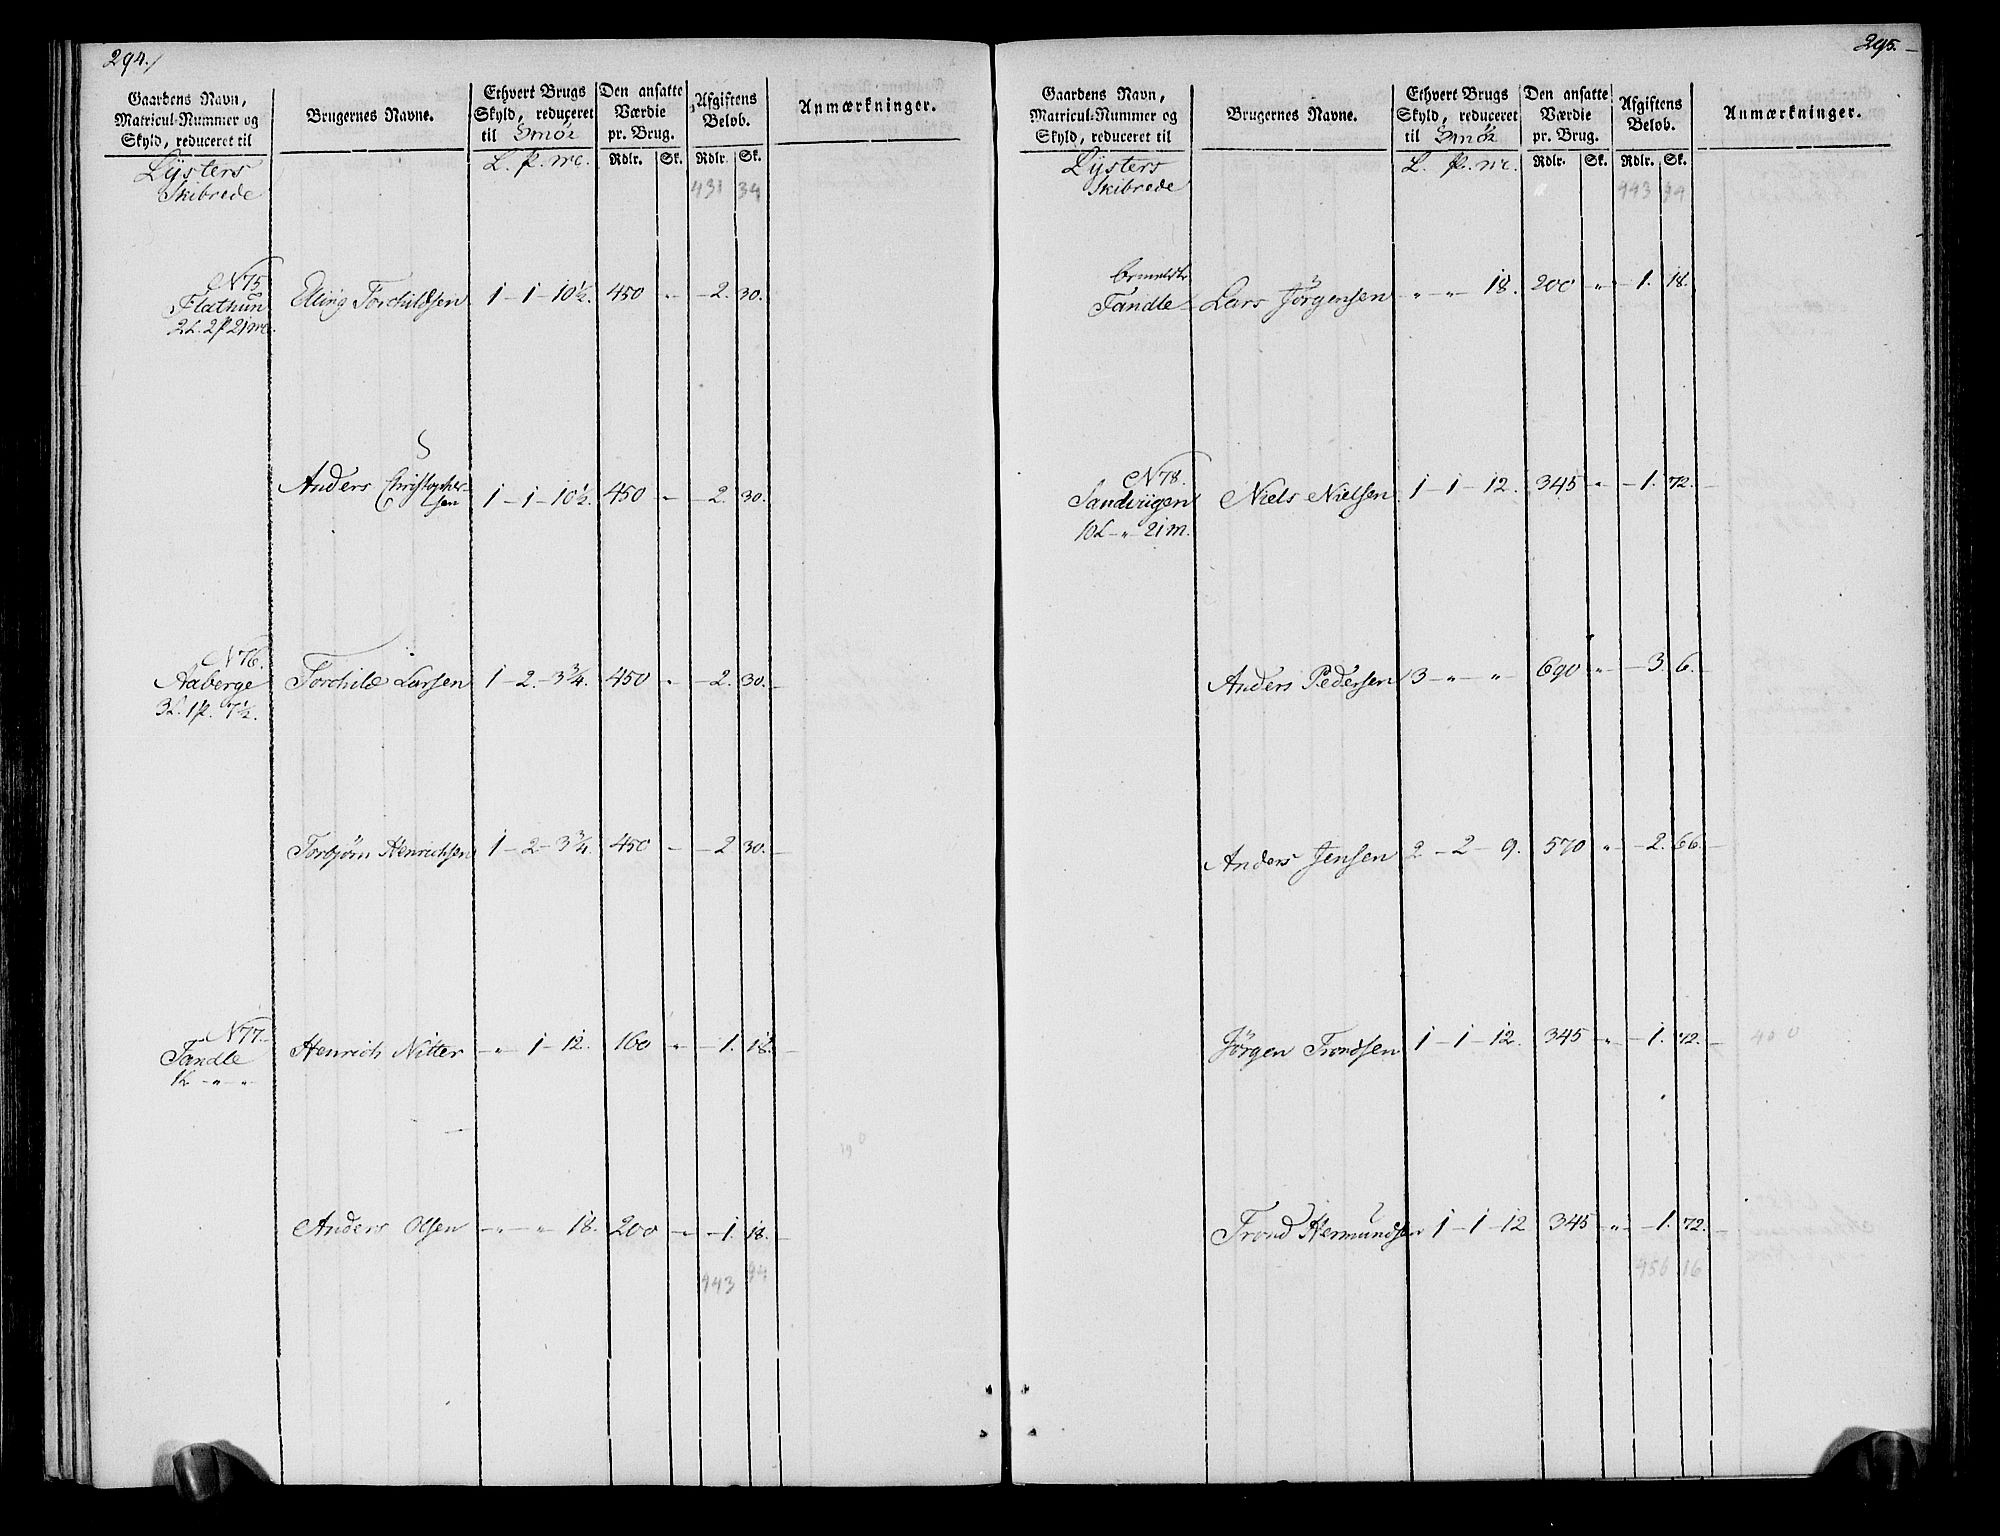 294./
Gaardens Navn, Matricul-Nummer og Skyld, reduceret til
Brugernes Navne.
Ethvert Brugs Skyld, reduceret til Smör
Den ansatte Værdie pr. Brug.
Afgiftens Beløb.
Anmærkninger.
Lÿsters Skibrede
L. P. mc.
Rdlr. Sk. Rdlr. Sk.
431 34
N 75
Flathun Elling Torchildsen 1 - 1 - 10½. 450 " - 2. 30.
2 L. 2 P 21 mc.
Anders Christopher-
sen 1 - 1 - 10½. 450 " - 2. 30.
N 76.
Aaberge Torchild Larsen 1 - 2. - 3¾. 450 " - 2. 30. -
3 L. 1 P. 7½.
Torbjørn Henrichsen 1 - 2 - 3¾. 450 - 2 30. -
N 77.
Tandle Henrich Nitter - " - 1 - 12. 160 " - 1. 18. -
1 L - " - "
Anders Olsen - " - " 18. 200 " - 1. 18. -
943 94
295.
Gaardens Navn, Matricul-Nummer og Skyld, reduceret til
Brugernes Navne.
Ethvert Brugs Skyld, reduceret til Smör
Den ansatte Værdie pr. Brug.
Afgiftens Beløb.
Anmærkninger.
Lÿsters Skibrede
L. P. mc.
Rdlr. Sk. Rdlr. Sk.
943 94
Tandle Lars Jørgensen " - " - 18. 200 " - 1. 18.
N 78.
Sandvigen Niels Nielsen 1 - 1 - 12. 345 " - 1. 72. -
10 L - " - 21 m.
Anders Pedersen 3 - " - " 690 " - 3. 6. -
Anders Jensen 2 - 2 - 9. 570 " - 2. 66. -
Jørgen Trondsen 1 - 1 - 12. 345 " - 1. 72. -
Trond Hermundsen 1 - 1 - 12 345 " - 1. 72. -
956 16